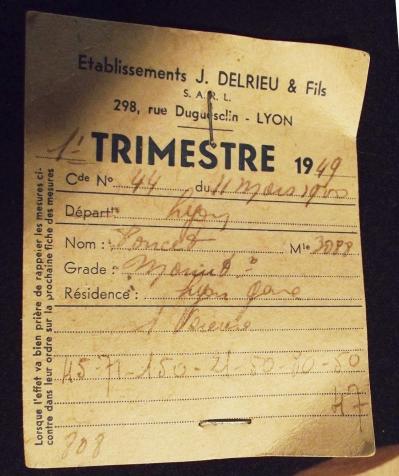 Etablissements J. DELRIEU & Fils
S. A. R. L.
298, rue Duguesclin - LYON
1er TRIMESTRE 1949
Cde No 44 du 11 Mars 1900
Départt: Lyon
Nom : Poncet Mle 3888
Grade :
Résidence : Lyon Gare
1 Vareuse
45-71-150-21-50-80-50
47
808
Lorsque l'effet va bien prière de rappeler les mesures ci-
contre dans leur ordre sur la prochaine fiche des mesures